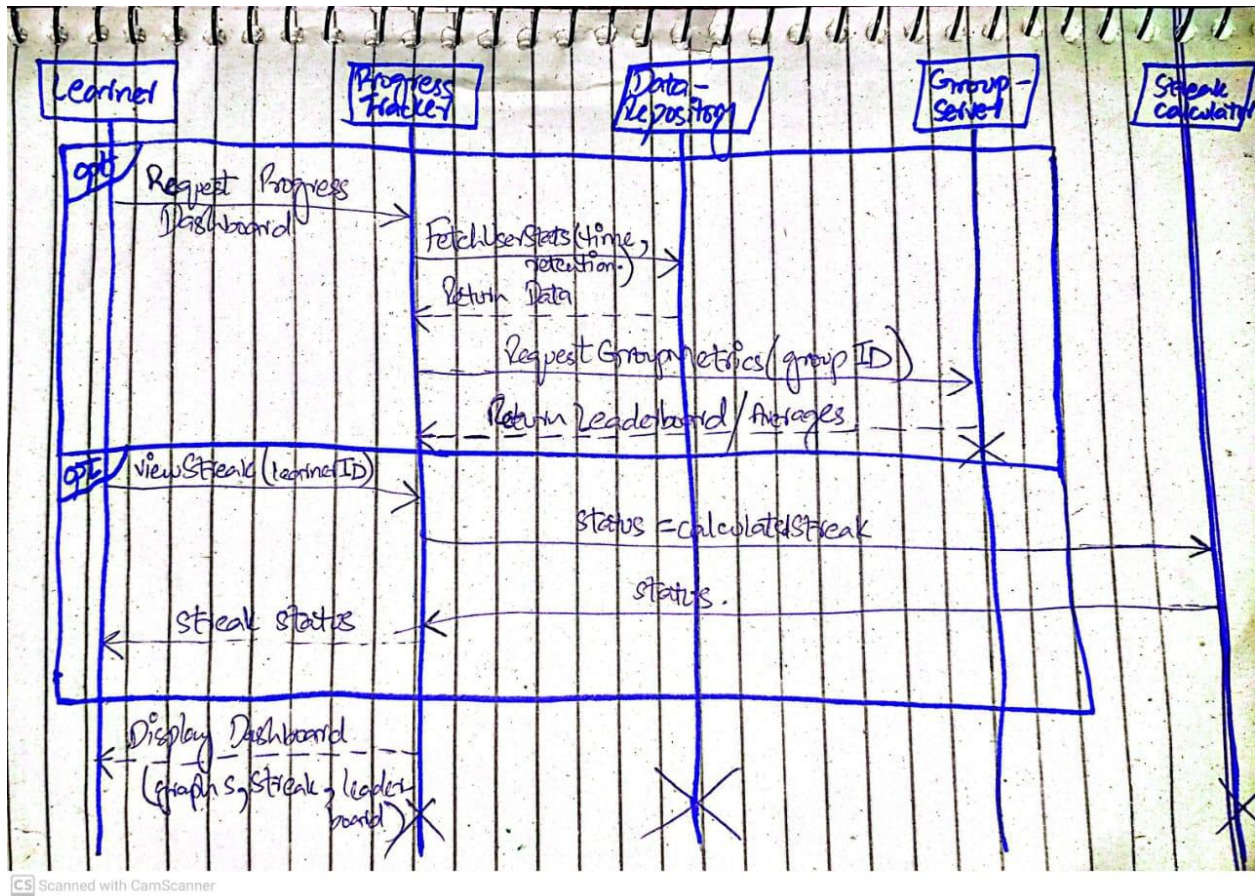 Learner
Progress
Tracker
Data-
Repository
Group-
Server
Streak
calculator
opt
Request Progress
Dashboard
FetchUserStats(time,
retention.)
Return Data
RequestGroupMetrics(group ID)
Return Leaderboard/Averages
opt
viewStreak(learnerID)
status = calculatedStreak
status.
streak status
Display Dashboard
(graphs, streak, leader
board)
CS Scanned with CamScanner